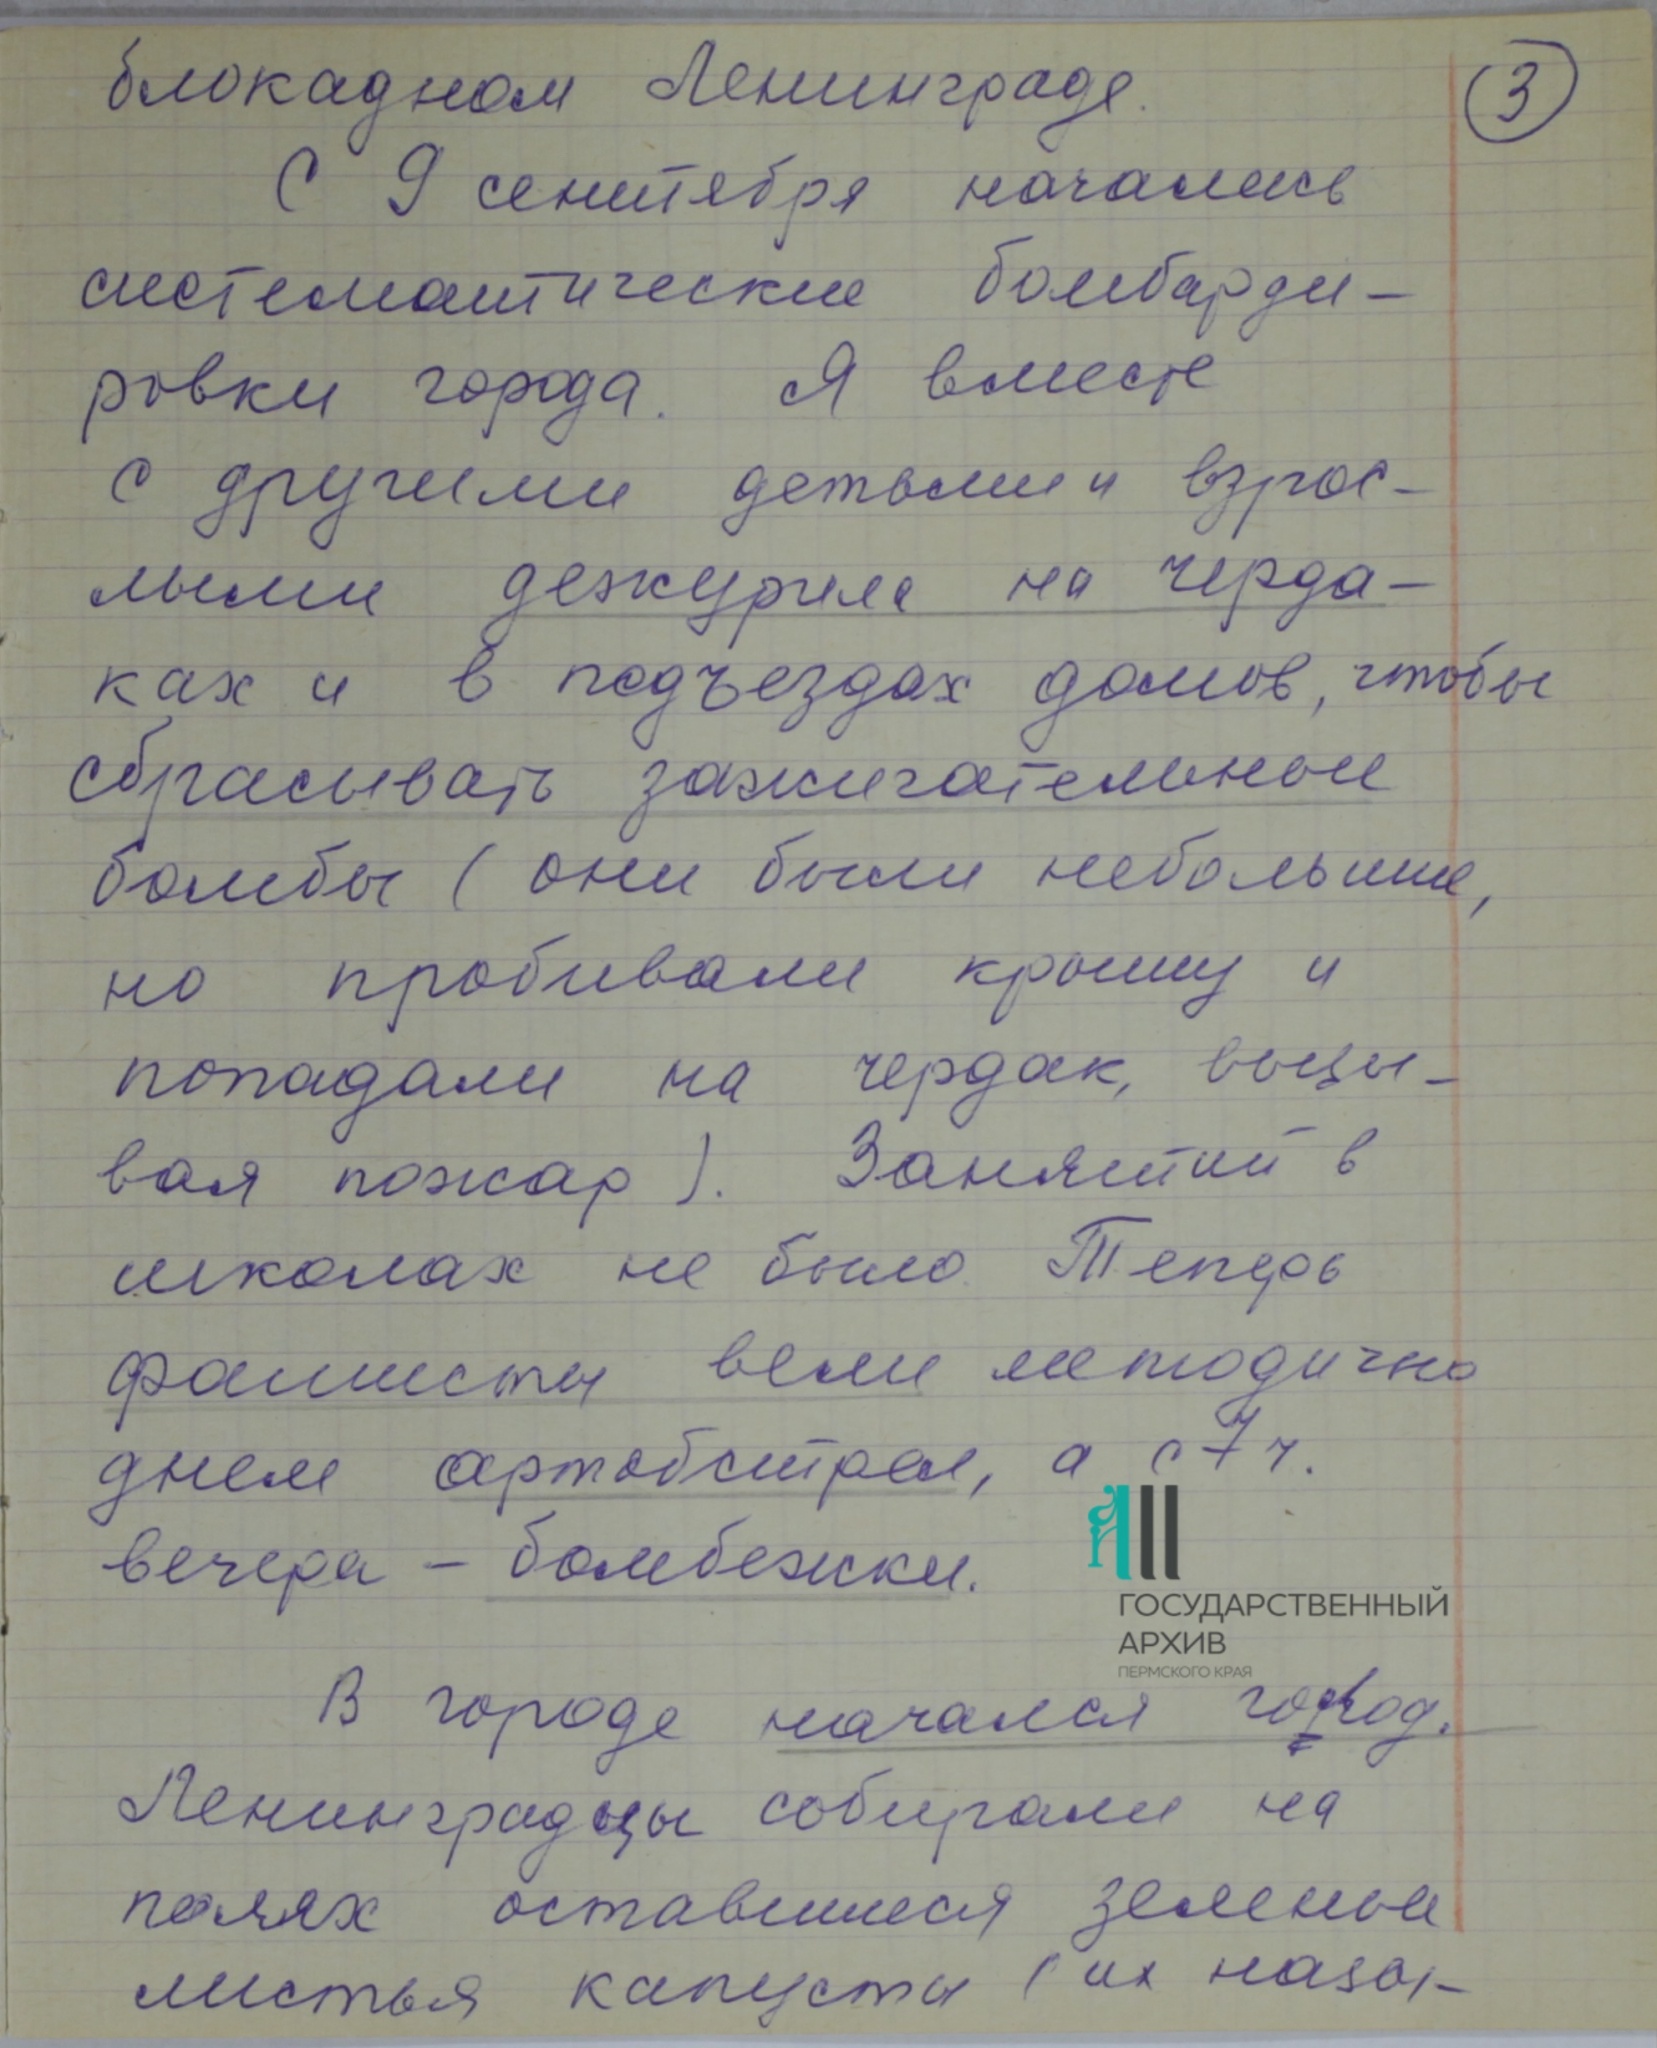 3
блокадном Ленинграде.
С 9 сентября начались
систематические бомбарди-
ровки города. Я вместе
с другими детьми и взрос-
лыми дежурила на черда-
ках и в подъездах домов, чтобы
сбрасывать зажигательные
бомбы (они были небольшие,
но пробивали крышу и
попадали на чердак, вызы-
вая пожар). Занятий в
школах не было. Теперь
фашисты вели методично
днем артобстрел, а с 7 ч.
вечера – бомбежки.
ГОСУДАРСТВЕННЫЙ
АРХИВ
ПЕРМСКОГО КРАЯ
В городе начался голод.
Ленинградцы собирали на
полях оставшиеся зеленые
листья капусты (их назы-